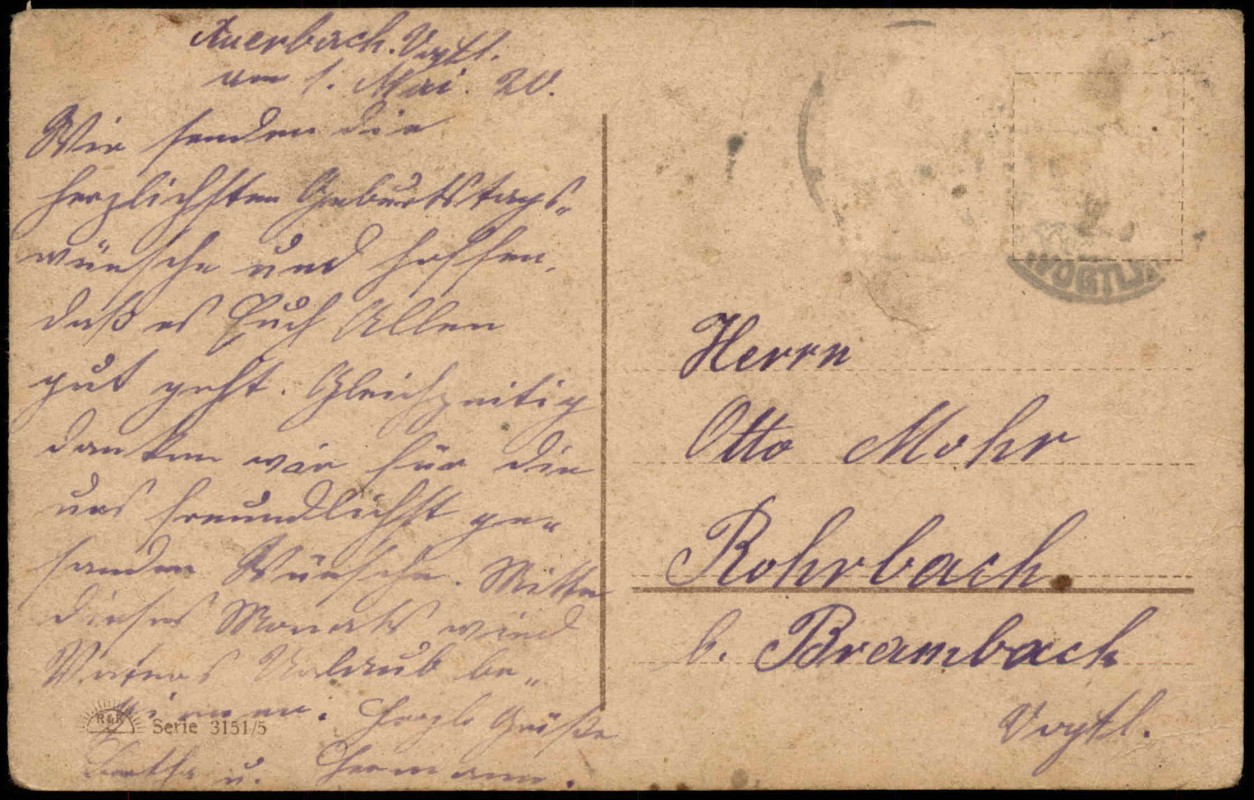 Auerbach. Vogtl.
am 1. Mai. 20.
Wir senden die
herzlichsten Geburtstags-
wünsche und hoffen,
daß es Euch Allen
gut geht. Gleichzeitig
danken wir für die
uns freundlichst ge-
sanden Wünsche. Mitte
dieses Monats wird
Vaters Urlaub be-
ginnen. Herzl. Grüße
Bertha u. Hermann.
R&K
Serie 3151/5
VOGTL.
Herrn
Otto Mohr
Rohrbach.
b. Brambach
Vogtl.